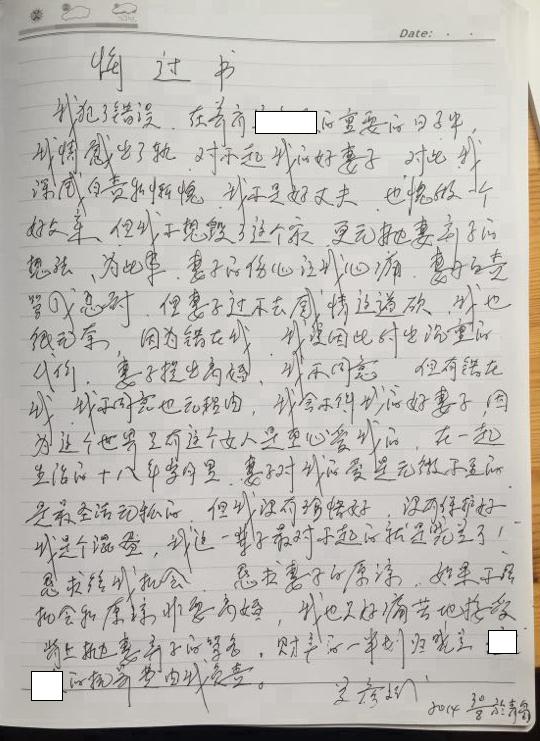 Date:
悔过书
我犯了错误. 在养育 的重要的日子中,
我情感出了轨. 对不起我的好妻子 对此我
深感自责和惭愧. 我不是好丈夫 也愧做一个
好父亲, 但我不想毁了这个家. 更无抛妻弃子的
想法, 为此事. 妻子的伤心让我心痛. 妻子
但妻子过不去感情这道砍. 我也
很无奈, 因为错在我, 我要因此付出沉重的
代价, 妻子提出离婚, 我不同意 但有错在
我, 我不同意也无理由, 我舍不得我的好妻子, 因
为这个世界只有这个女人是真心爱我的. 在一起
生活的十八年岁月里. 妻子对我的爱是无微不至的
是最圣洁无私的. 但我没有珍惜好, 没有保护好
我是个混蛋, 我这一辈子最对不起的就是 了!
恳求给我机会 恳求妻子的原谅. 如果不给
机会和原谅非要离婚, 我也只好痛苦地接受
背上抛妻弃子的骂名. 财产的一半划归
的抚养费由我负责。
2014 30/8 於青岛